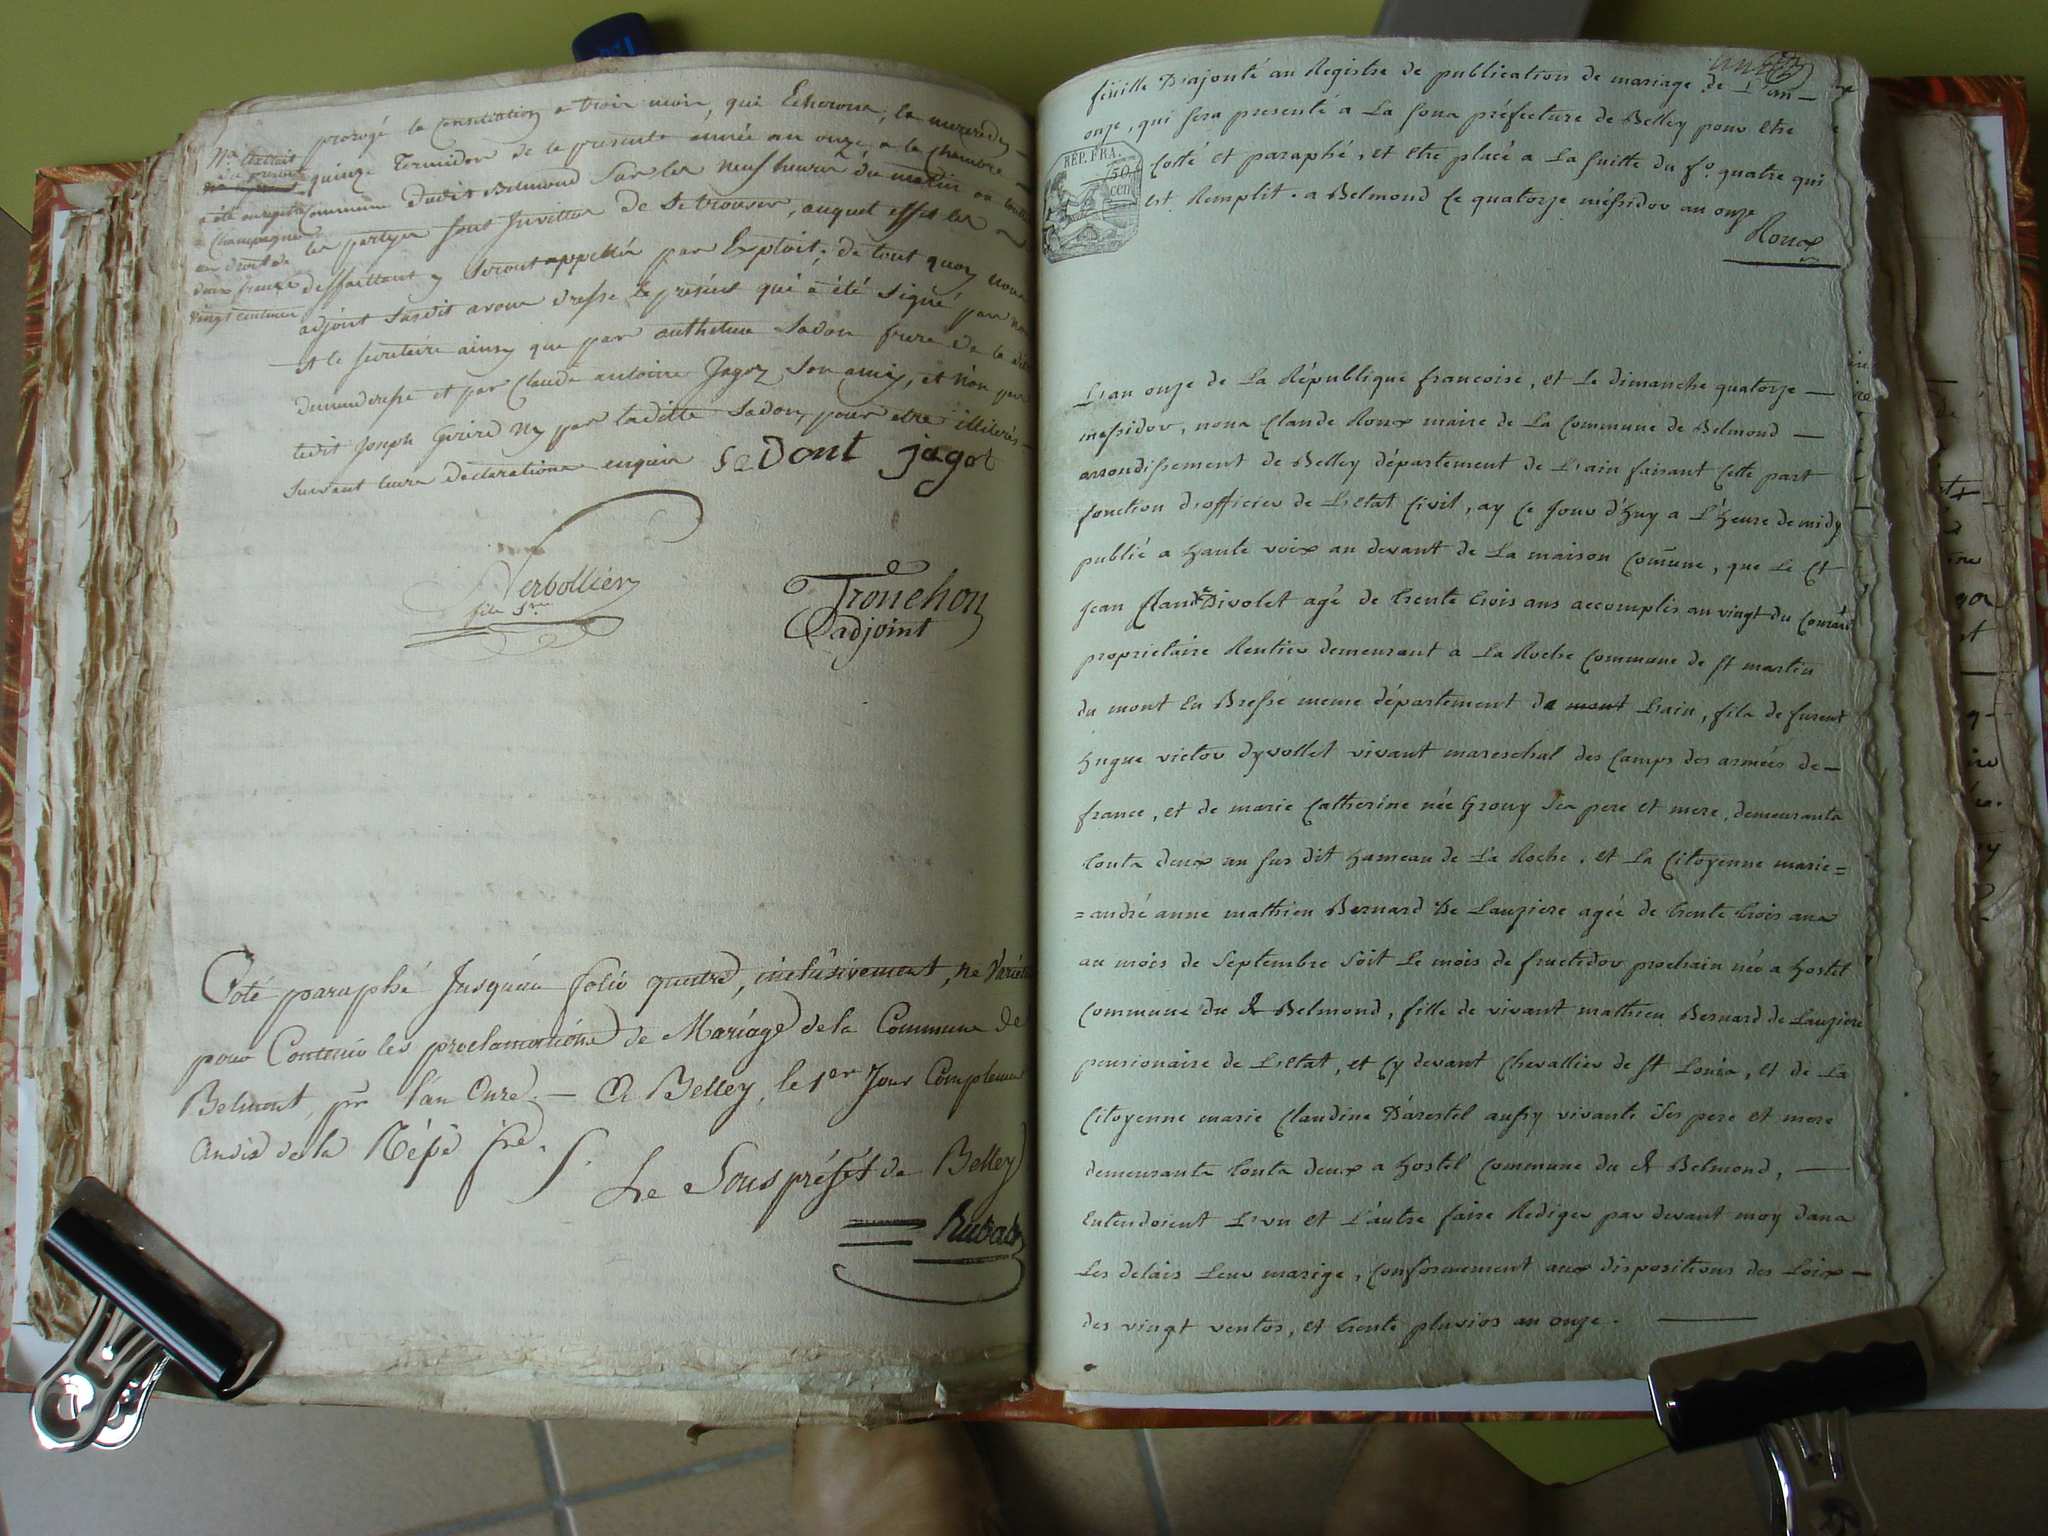 prorogé la Conciliation a trois mois, qui Echerront, le mercredy
quinze Termidor de la presente année an onze, a la chambre
commune dudit Belmond sur les neuf heures du matin ou toutes
les partyes sont Invittée de se trouver, auquel effet les
deffaillant y seront appellée par Exploit, de tout quoy nous
adjoint susdit avons dressé le présent qui a été signé par nous
et le secretaire ainsy que par anthelme sadon frere de la ditte
demanderesse et par Claude antoine Jagoz son amis, et non par
ledit joseph ny par laditte sadon, pour etre illiterés
suivant leurs declarations enquis
a été enregistré
a Champagne
au droit de
deux francs
vingt centimes
sadont jagot
Verbollier
fils
Tronchon
adjoint
Coté paraphé Jusqu'au folio quatre, inclusivement, ne Varietur
pour Contenir les proclamations de Mariage de la Commune de
Belmont, pr l'an Onze. — A Belley, le 1er Jour Complemre
an dix de la Répe fre.
Le Sous préfet de Belley
feuille D'ajouté au Registre de publication de mariage de L'an —
onze, qui sera presenté a La sous préfecture de Belley pour Etre
Cotté et paraphé, et Etre placé a La suitte du fo. quatre qui
Est Remplit. a Belmond Ce quatorze méssidor an onze
Roux
REP. FRA.
50
cen
L'an onze de La République francoise, et Le dimanche quatorze —
messidor, nous Claude Roux maire de La Commune de Belmond —
arrondissement de Belley département de L'ain faisant Cette part
fonction d'officier de L'Etat Civil, ay Ce Jour d'huy a L'heure de midy
publié a haute voix au devant de La maison Commune, que Le Ct
jean Claude Divolet agé de trente trois ans accomplis au vingt du Courant
proprietaire Rentier demeurant a La Roche Commune de st martin
du mont En Bresse meme département de mont L'ain, fils de furent
hugue victor dyvollet vivant mareschal des Camps des armées de —
france, et de marie Catherine née Grouy ses pere et mere, demeurants
touts deux au sus dit hameau de La Roche, et La Citoyenne marie =
= andré anne mathieu Bernard De Lauziere agée de trente trois ans
au mois de Septembre soit Le mois de fructidor prochain née a hostel
Commune du dt Belmond, fille de vivant mathieu Bernard de Lauziere
pensionaire de L'Etat, et Cy devant Chevallier de st Louis, et de La
Citoyenne marie Claudine D'arestel aussy vivante ses pere et mere
demeurants touts deux a hostel Commune du dt Belmond, —
Entendoient L'un et L'autre faire Rediger par devant moy dans
Les delais Leur marige, Conformement aux dispositions des Loix —
des vingt ventos, et trente pluvios an onze. —